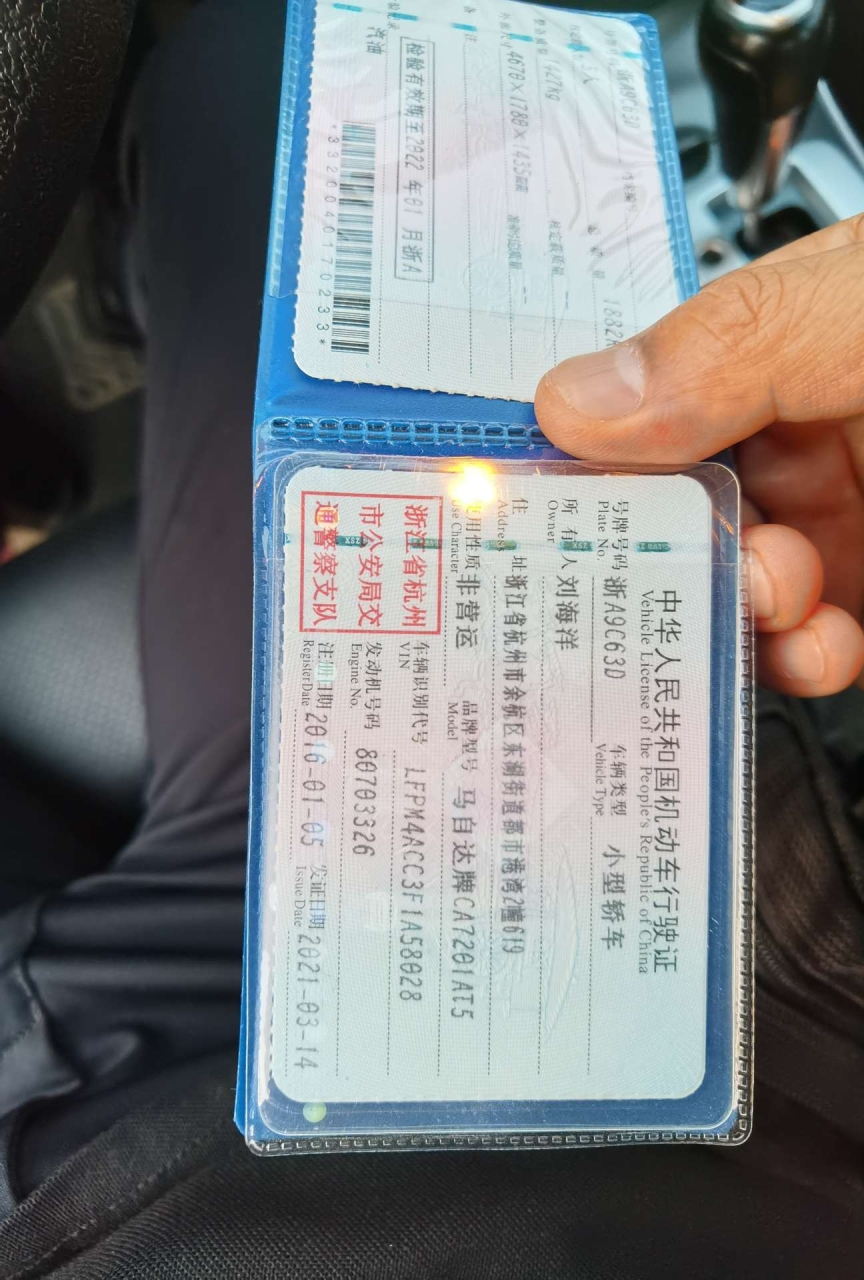 中华人民共和国机动车行驶证
Vehicle License of the People's Republic of China
号牌号码 浙A9C63D 车辆类型 小型轿车
Plate No. Vehicle Type
所有人 刘海洋
Owner
住址 浙江省杭州市余杭区东湖街道都市港湾2幢619
Address
使用性质 非营运 品牌型号 马自达牌CA7201AT5
Use Character Model
浙江省杭州
市公安局交
通警察支队
车辆识别代号 LFPM4ACC3F1A58028
VIN
发动机号码 80703326
Engine No.
注册日期 2016-01-05 发证日期 2021-03-14
Register Date Issue Date
浙A9C63D
5人
1427kg
外廓尺寸 4670×1780×1435mm
备注
检验有效期至2022年01月浙A
汽油
*3320040170233*